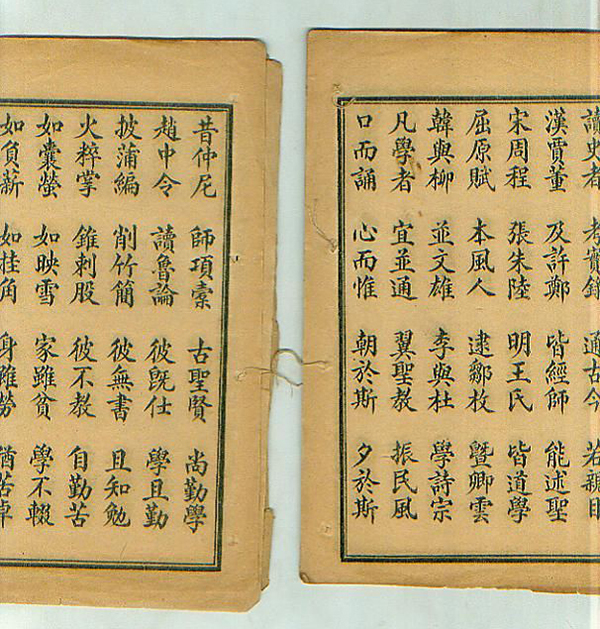 讀史者 考實錄 通古今 若親目
漢賈董 及許鄭 皆經師 能述聖
宋周程 張朱陸 明王氏 皆道學
屈原賦 本風人 逮鄒枚 暨卿雲
韓與柳 並文雄 李與杜 學詩宗
凡學者 宜並通 翼聖教 振民風
口而誦 心而惟 朝於斯 夕於斯
昔仲尼 師項橐 古聖賢 尚勤學
趙中令 讀魯論 彼旣仕 學且勤
披蒲編 削竹簡 彼無書 且知勉
火粹掌 錐刺股 彼不教 自勤苦
如囊螢 如映雪 家雖貧 學不輟
如負薪 如桂角 身雖勞 猶苦卓